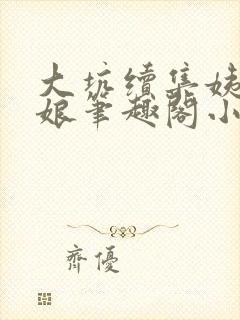 大坑續集姨
娘筆趣閣小
齊優